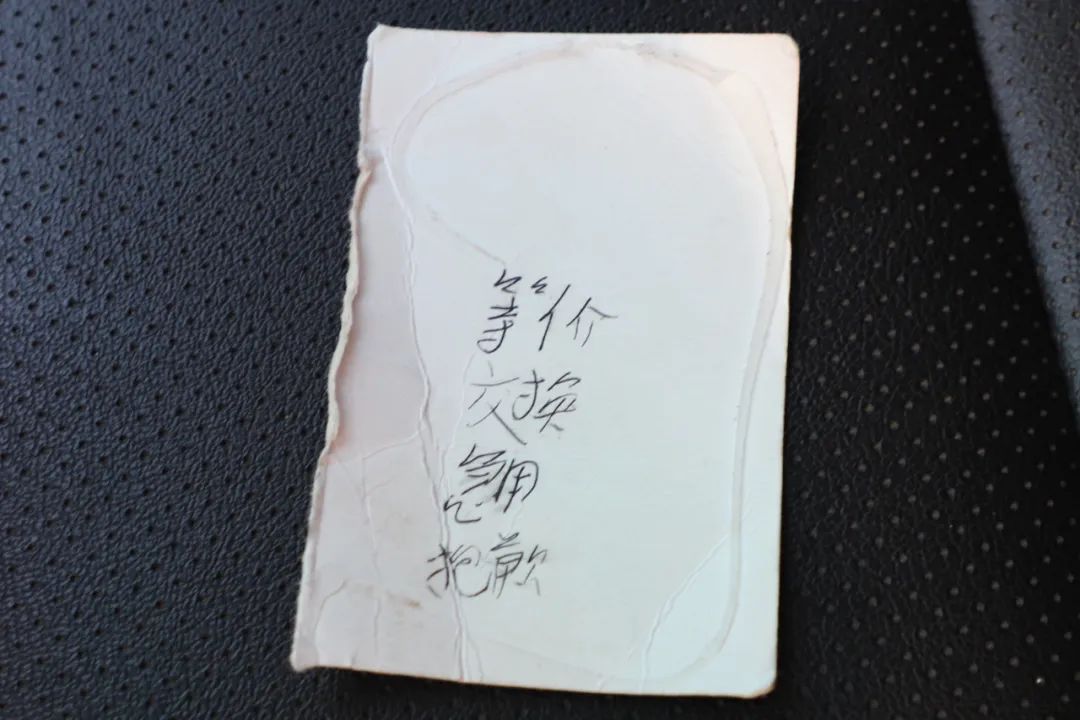 等价
交换
急用
抱歉